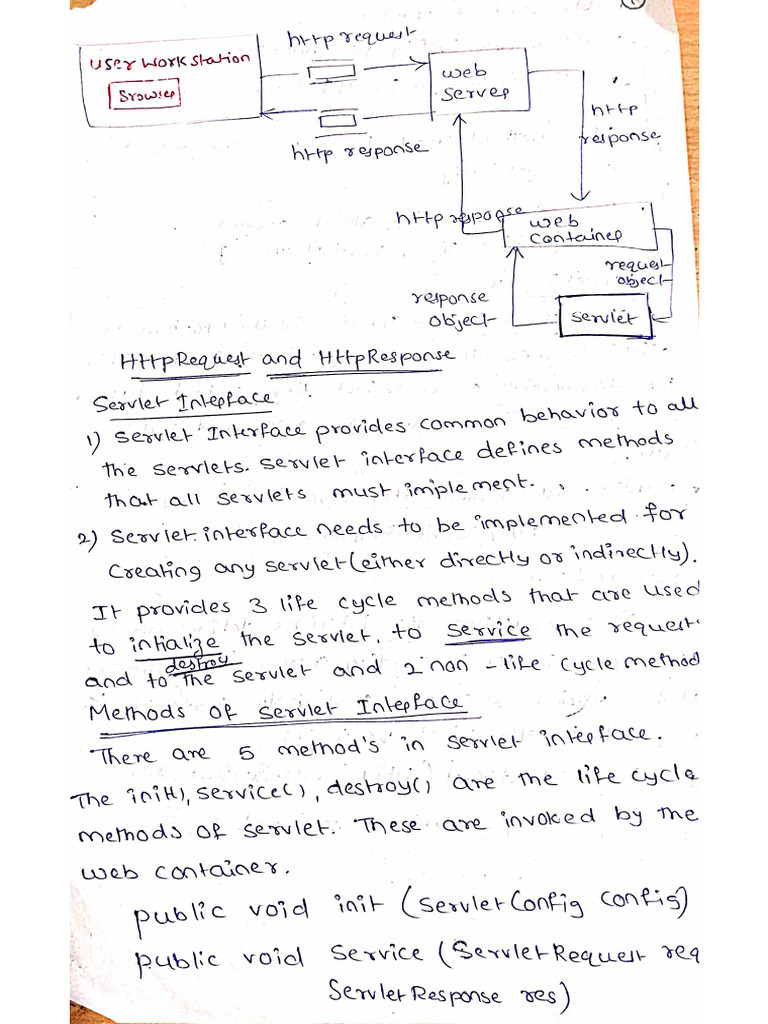 http request
user work station
Browser
web
server
http response
http
response
http respose
web
container
request
object
response
object
servlet
HttpRequest and HttpResponse
Servlet Interface
1) Servlet Interface provides common behavior to all
the servlets. servlet interface defines methods
that all servlets must implement.
2) Servlet interface needs to be implemented for
creating any servlet (either directly or indirectly).
It provides 3 life cycle methods that are used
to intialize the servlet, to service the request
destroy
and to the servlet and 2 non-life cycle method
Methods of servlet Interface
There are 5 method's in servlet interface.
The init(), service(), destroy() are the life cycle
methods of servlet. These are invoked by the
web container.
public void init (ServletConfig config)
public void service (ServletRequest req
ServletResponse res)